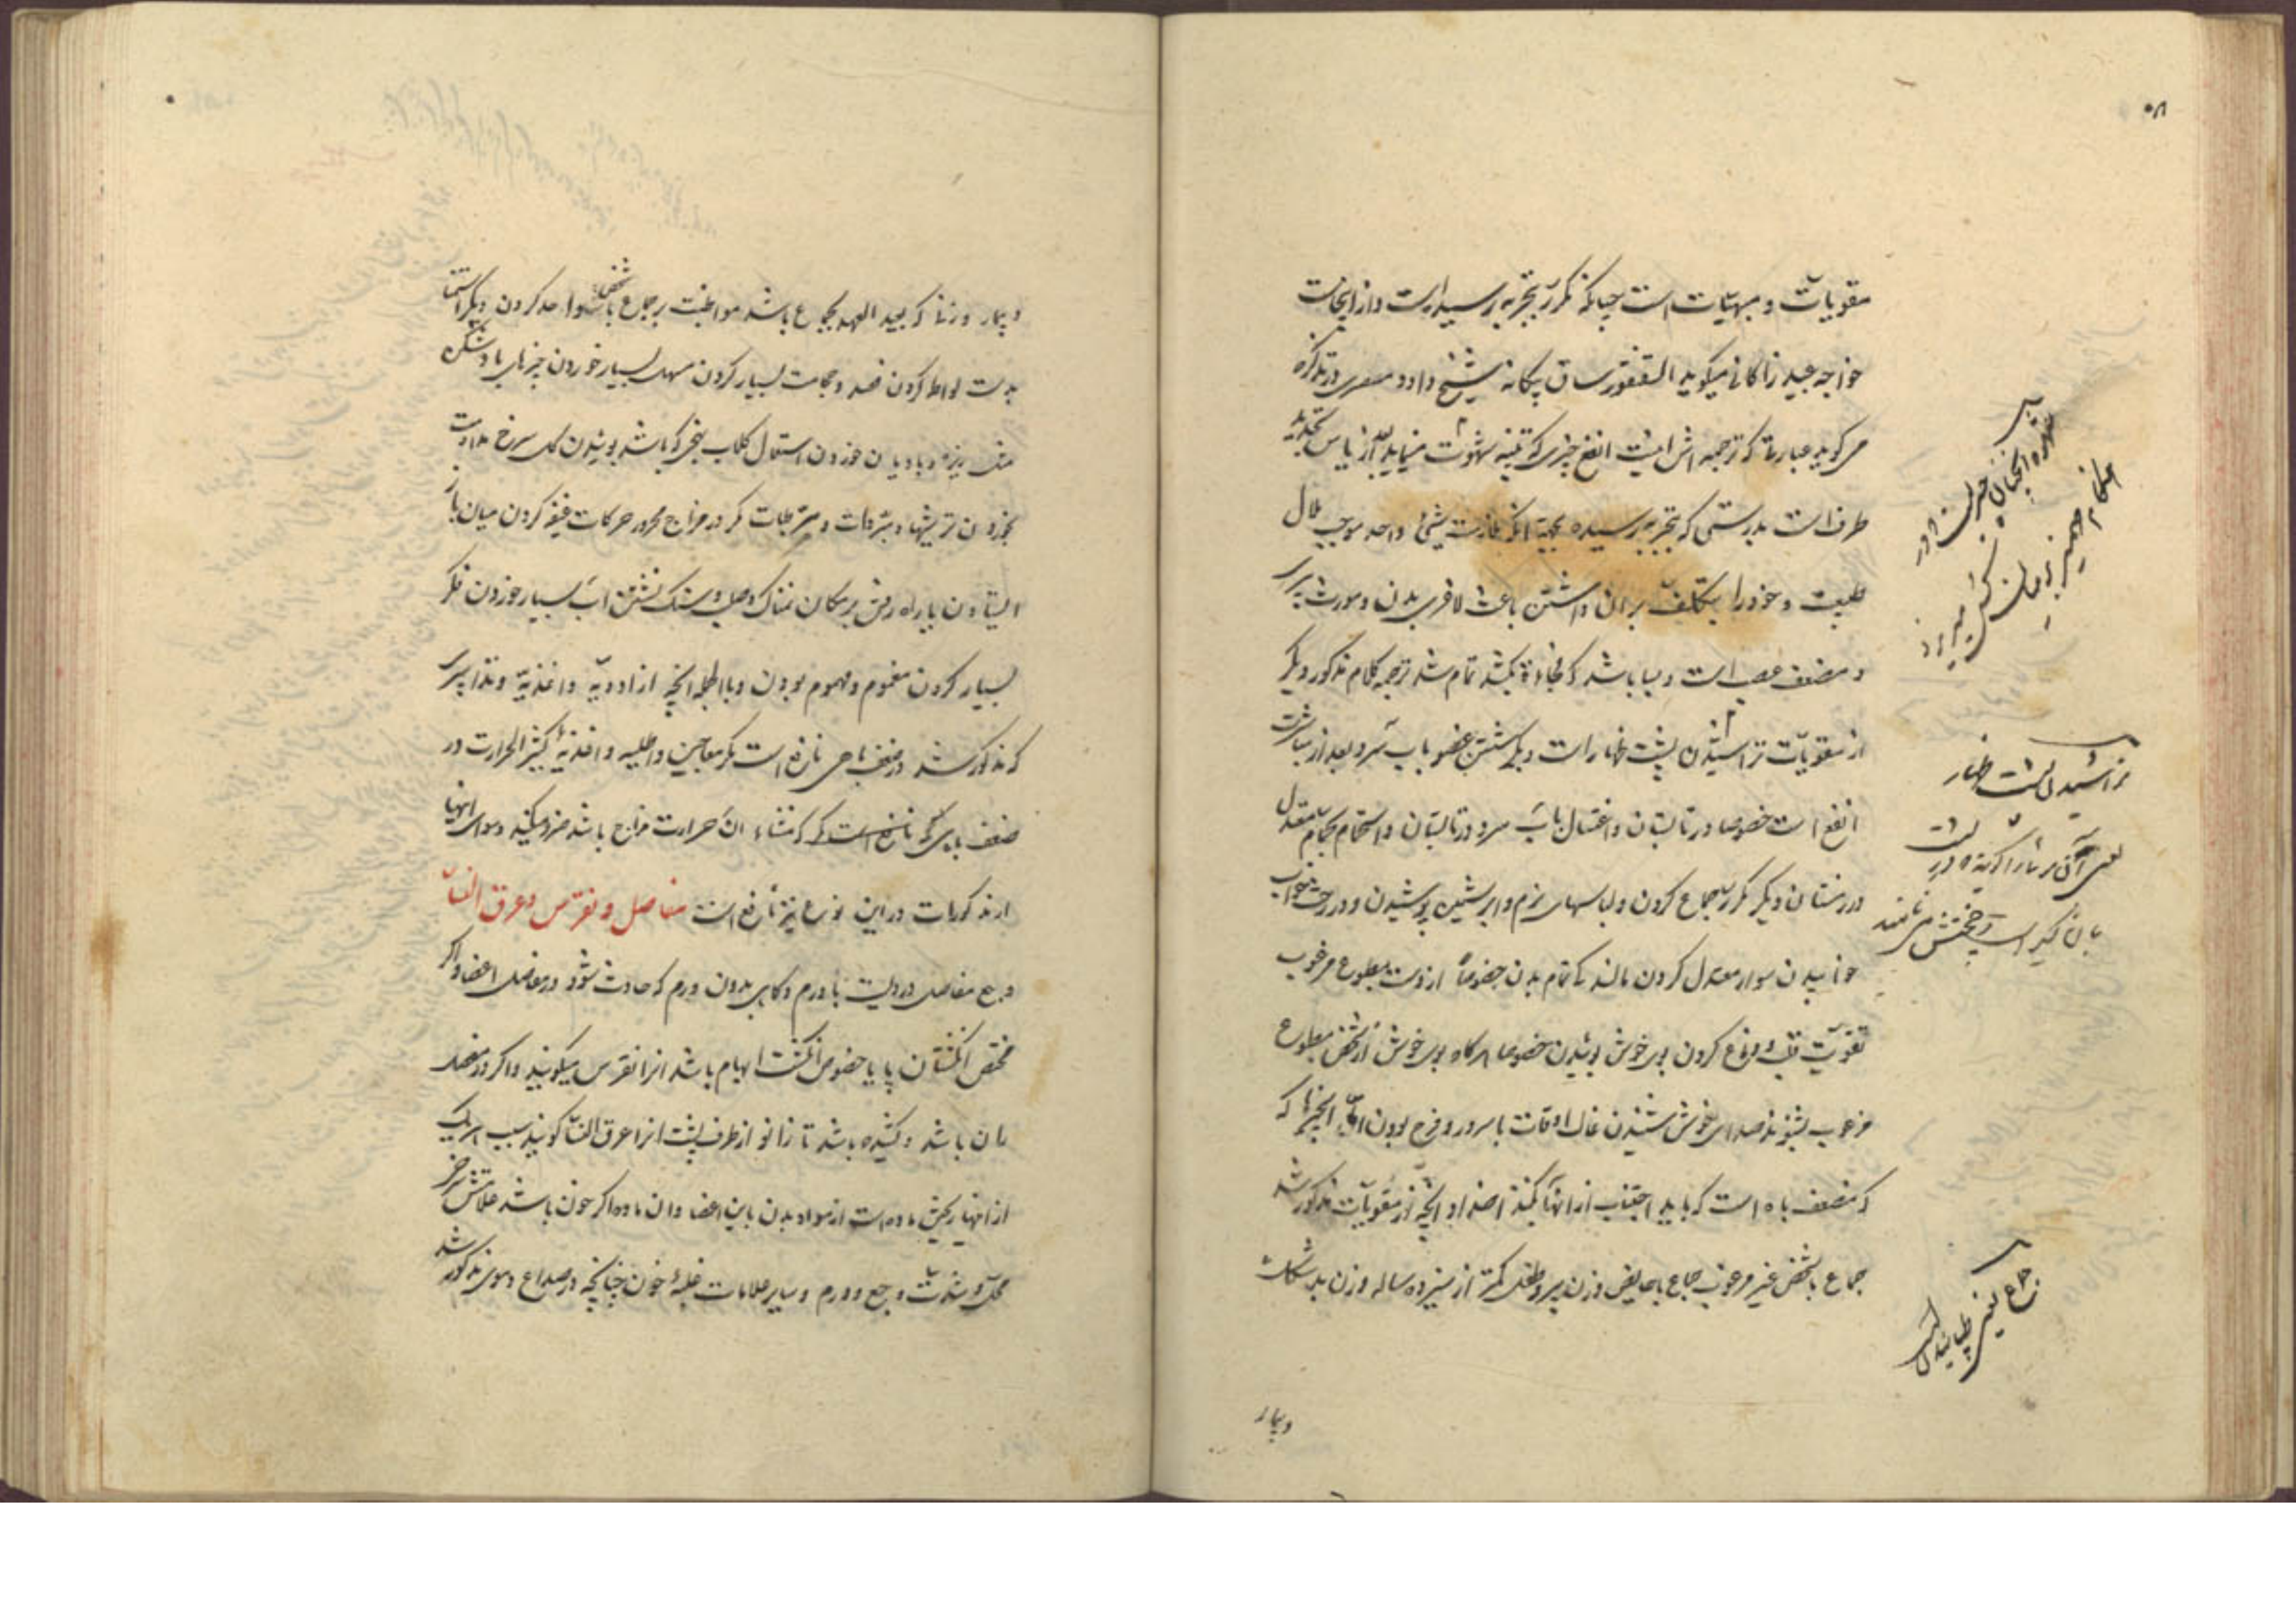 مقویات و مبهیات است چنانکه مکرر بتجربه رسیده است و از اینجاست
خواجه عبید زاکانی میکوید السقنقور ساق بیکانه شیخ داود مصری در تذکره
می کوید عبارتی که ترجمه اش اینست انفع چیزی که تنبیه شهوت مینماید بعد از یاس تجدید
طرف است بدرستی که بتجربه رسیده بجهة آنکه ملازمت شیئی واحد موجب ملال
طبیعت و خود را بتکلف بر آن داشتن باعث لاغری بدن و مورث پیری
و مضعف عصب است و بسا باشد که فجاءة بکشد تمام شد ترجمه کلام مذکور دیکر
از مقویات تراشیدن پشت ظهار است دیکر شستن عضو باب سرد بعد از مباشرت
انفع است خصوصا در تابستان و اغتسال باب سرد در تابستان و استحمام بحمام معتدل
در زمستان دیکر مکرر جماع کردن و لباسهای نرم و ابریشمین پوشیدن و در رخت خواب
خوابیدن سوار معتدل کردن مالند کی تمام بدن خصوصا از دست مطبوع مرغوب
تقویت قلب و دماغ کردن بوی خوش بوئیدن خصوصا هرکاه بوی خوش از شخص مطبوع
مرغوب بشنوند صدای خوش شنیدن غالب اوقات با سرور و فرح بودن اما چیزها که
که مضعف باه است که باید اجتناب از آنها بکنند اضداد آنچه از مقویات مذکور شد
جماع با شخص غیر مرغوب جماع با حایض و زن پیر و طفل کمتر از سیزده ساله و زن بد شکل
و بیمار
تراشیدن پشت ظهار
جماع یعنی
و بیمار و زنا که بعید العهد بجماع باشد مواظبت بر جماع با شخص واحد کردن دیکر استمنا
بدست لواط کردن فصد و حجامت بسیار کردن مسهل بسیار خوردن چیزهای باد شکن
مثل زیره و بادیان خوردن استعمال کلاب بنحوی که باشد بوئیدن کل سرخ مداومت
بخوردن ترشیها و مبردات و مرطبات مکر در مزاج محرور حرکات عنیفه کردن میان بار
ایستادن پا راه رفتن بر مکان نمناک و صلب و سنک نشستن آب بسیار خوردن فکر
بسیار کردن مغموم و مهموم بودن و بالجمله آنچه از ادویه و اغذیه و تدابیری
که مذکور شد در ضعف باهی نافع است مکر معاجین و اطلیه و اغذیه کثیر الحرارت در
ضعف باهی که نافع است که منشاء آن حرارت مزاج باشد ضرر میکند و سوای اینها
از مذکورات در این نوع نیز نافع است مفاصل و نقرس و عرق النسا
وجع مفاصل دردیست با ورم و کاهی بدون ورم که حادث شود در مفاصل اعضا و اکر
مختص انکشتان پا یا خصوص انکشت ابهام باشد آنرا نقرس میکویند و اکر در مفصل
ران باشد و کشیده باشد تا زانو از طرف پشت آنرا عرق النسا کویند سبب هر یک
از اینها ریختن ماده است از مواد بدن باین اعضا و آن ماده اکر خون باشد علامتش سرخی
محل و شدت وجع و ورم و سایر علامات غلبه خون چنانچه در صداع دموی مذکور شد